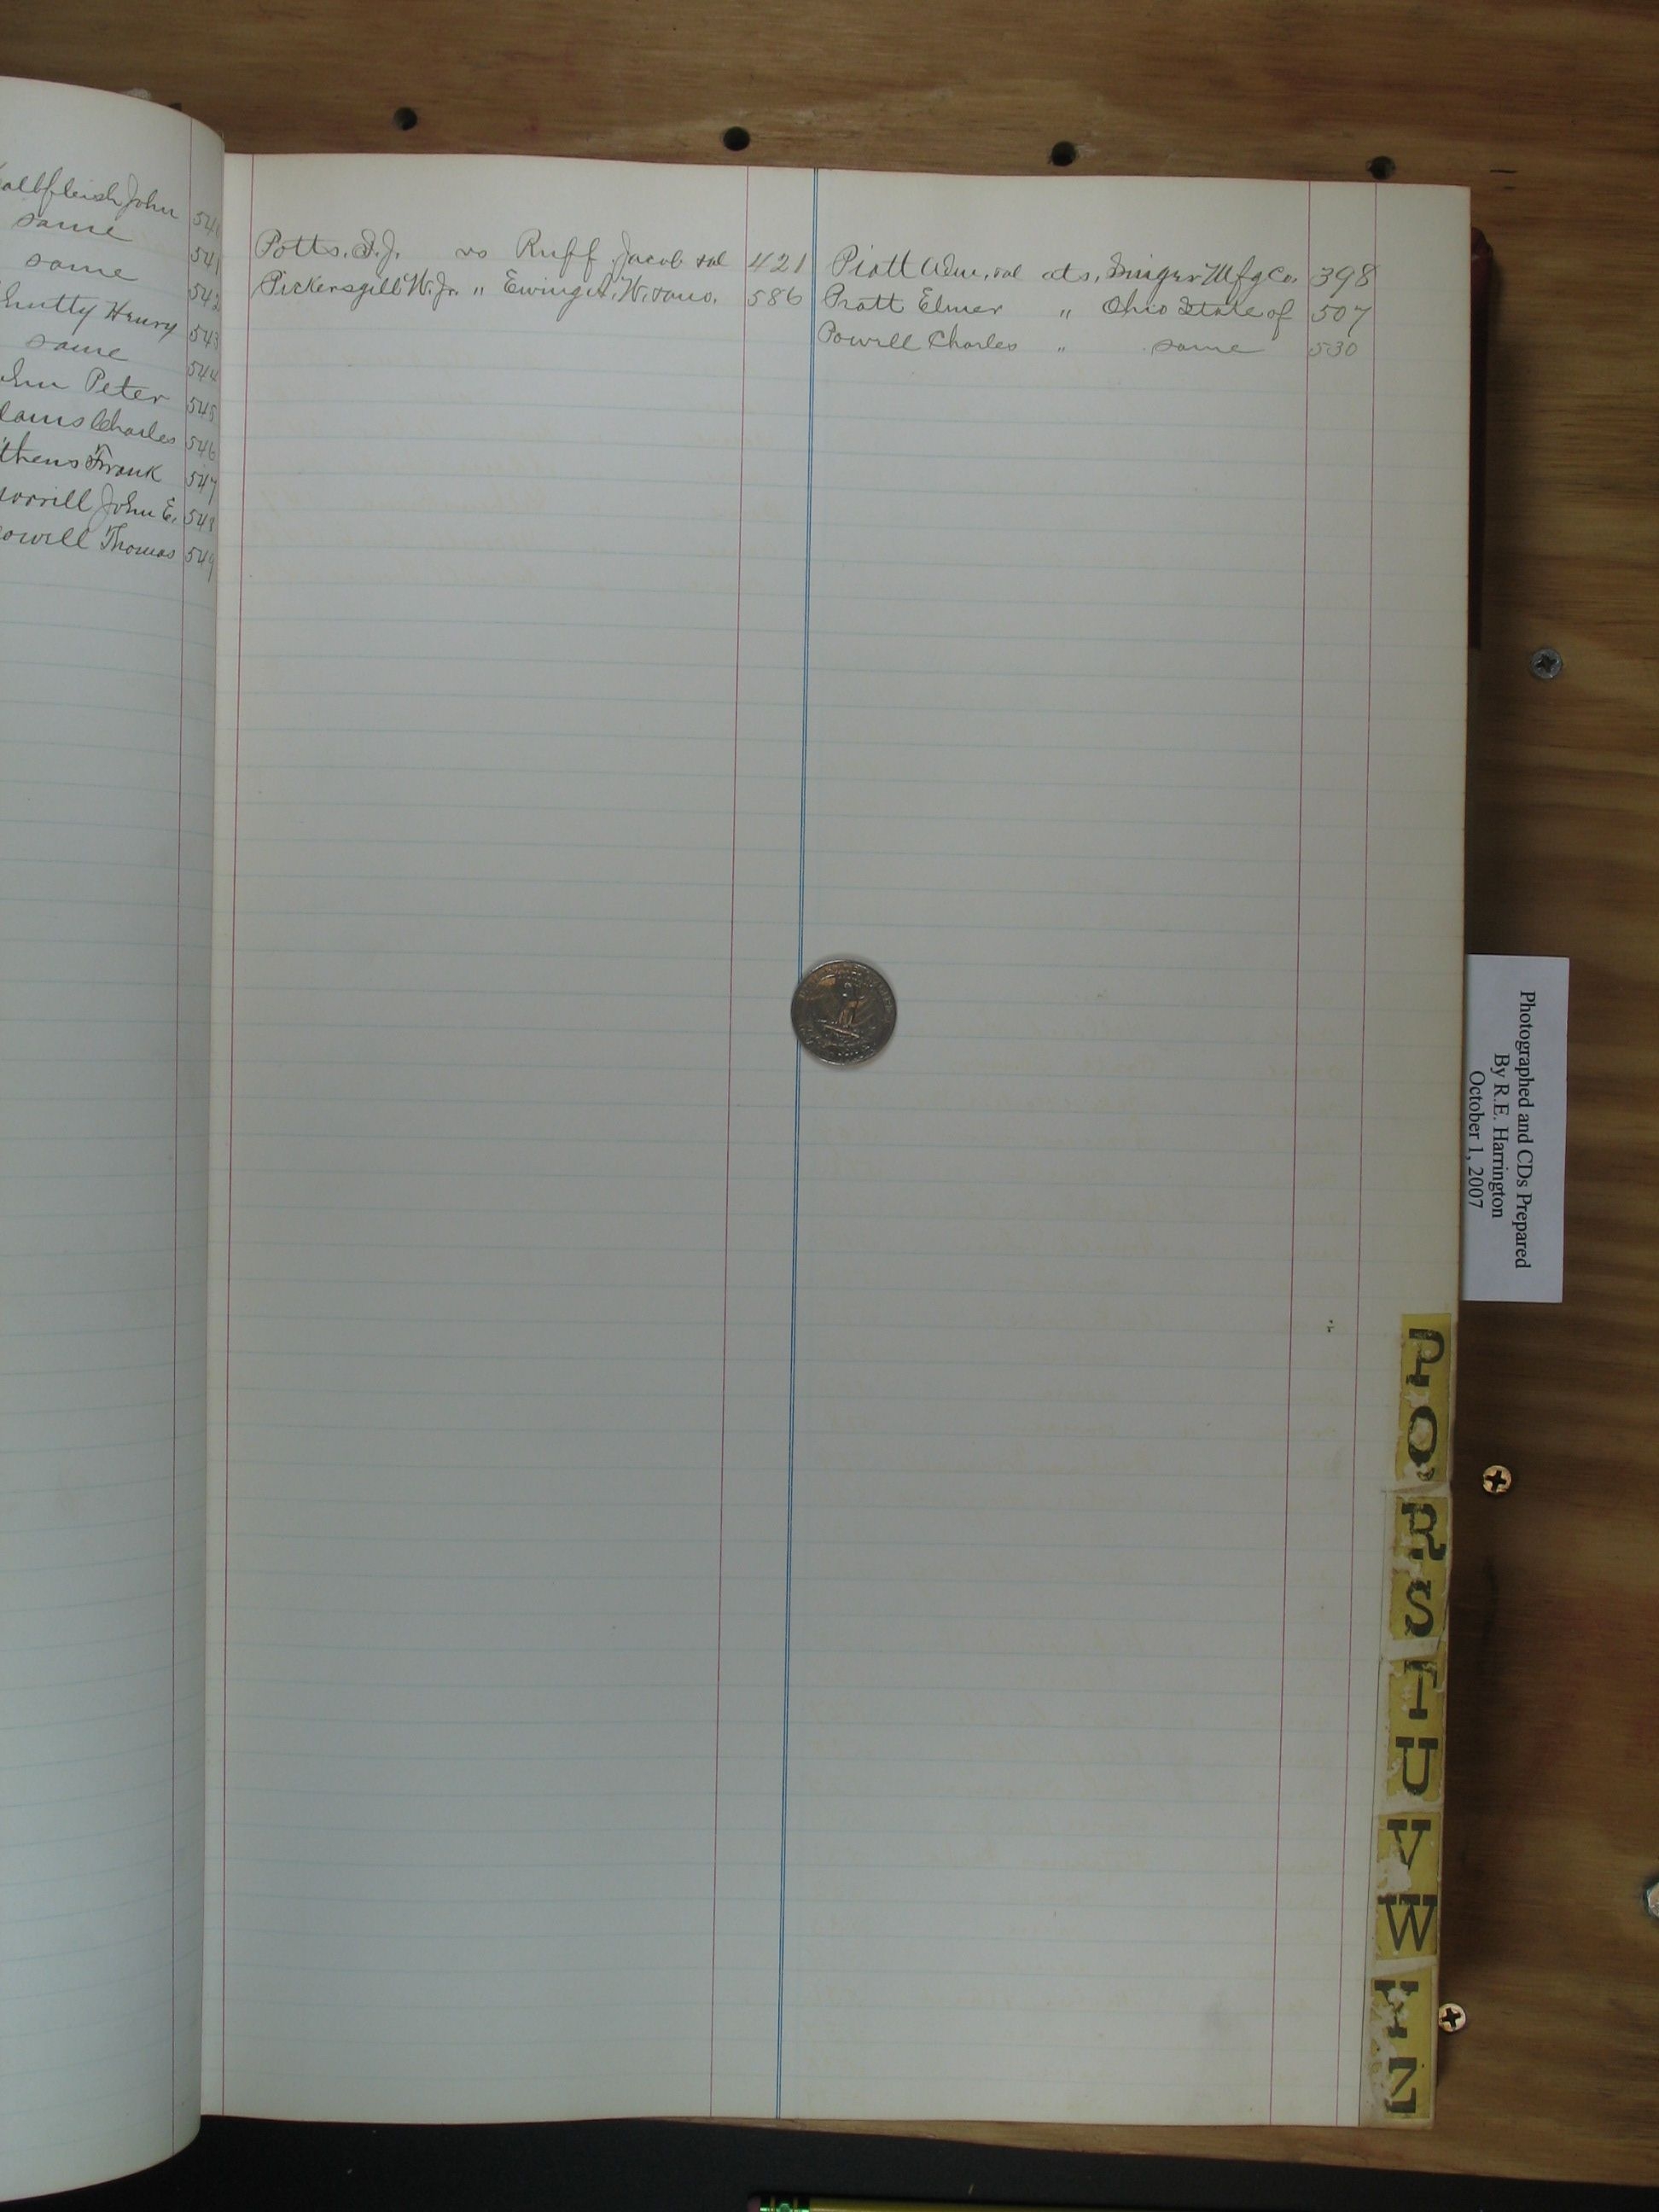 albfleish John 540
same 541
same 542
hutty Henry 543
same 544
ohn Peter 545
dams Charles 546
thens Frank 547
orrill John E. 548
owell Thomas 549
Potts. vs Ruff Jacob et al 421
Pickersgill W. Jr. " Ewing 586
Piatt Adm. et al ats. Singer Mfg Co. 398
Pratt Elmer " Ohio State of 507
Powell Charles " same 530
Photographed and CDs Prepared
By R.E. Harrington
October 1, 2007
P
Q
R
S
T
U
V
W
Y
Z